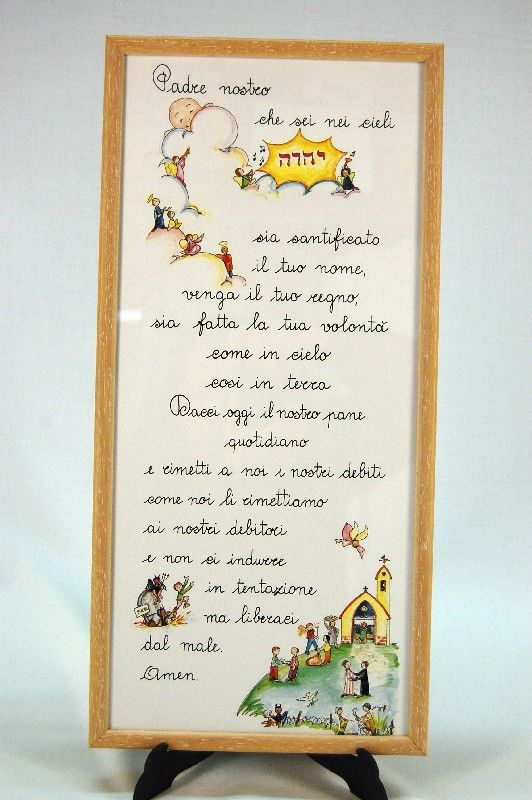 Padre nostro
che sei nei cieli
יהוה
sia santificato
il tuo nome,
venga il tuo regno,
sia fatta la tua volontà
come in cielo
così in terra
Dacci oggi il nostro pane
quotidiano
e rimetti a noi i nostri debiti
come noi li rimettiamo
ai nostri debitori
e non ci indurre
in tentazione
ma liberaci
dal male.
Amen.